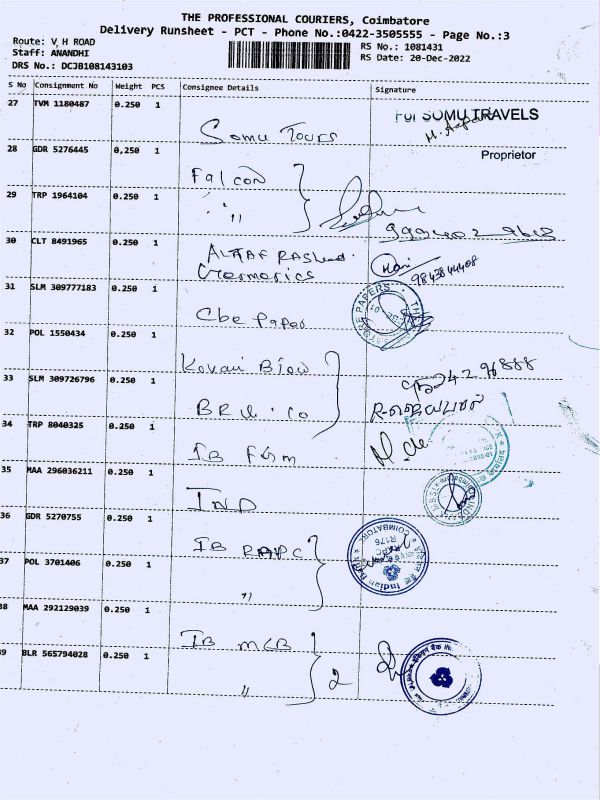 THE PROFESSIONAL COURIERS, Coimbatore
Delivery Runsheet - PCT - Phone No.:0422-3505555 - Page No.:3
Route: V H ROAD
Staff: ANANDHI
DRS No.: DCJB108143103
RS No.: 1081431
RS Date: 20-Dec-2022
S No Consignment No Weight PCS Consignee Details Signature
27 TVM 1180487 0.250 1
Somu Tours
For SOMU TRAVELS
Proprietor
28 GDR 5276445 0,250 1
Falcon
29 TRP 1964104 0.250 1
" "
30 CLT 8491965 0.250 1
ALTAF Rasheed
9843844408
31 SLM 309777183 0.250 1
Cbe Paper
32 POL 1550434 0.250 1
Kovai
33 SLM 309726796 0.250 1
34 TRP 8040325 0.250 1
IB
35 MAA 296036211 0.250 1
IND
36 GDR 5270755 0.250 1
IB RAPC
COIMBATORE
Indian Bank
37 POL 3701406 0.250 1
"
38 MAA 292129039 0.250 1
IB MCB
39 BLR 565794028 0.250 1
" 2